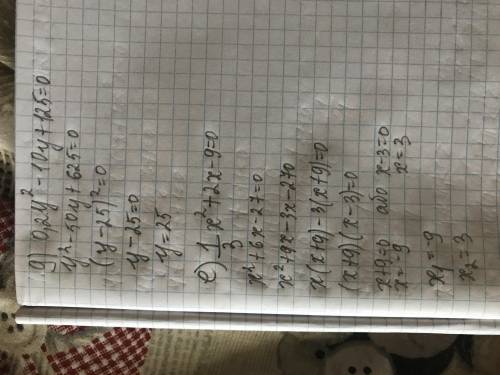 g) 0,2y² - 10y + 125 = 0
y² - 50y + 625 = 0
(y - 25)² = 0
y - 25 = 0
y = 25
e) 1/3 x² + 2x - 9 = 0
x² + 6x - 27 = 0
x² + 9x - 3x - 27=0
x(x+9) - 3(x+9) = 0
(x+9)(x-3) = 0
x+9=0 або x-3=0
x = -9 x = 3
x₁ = -9
x₂ = 3